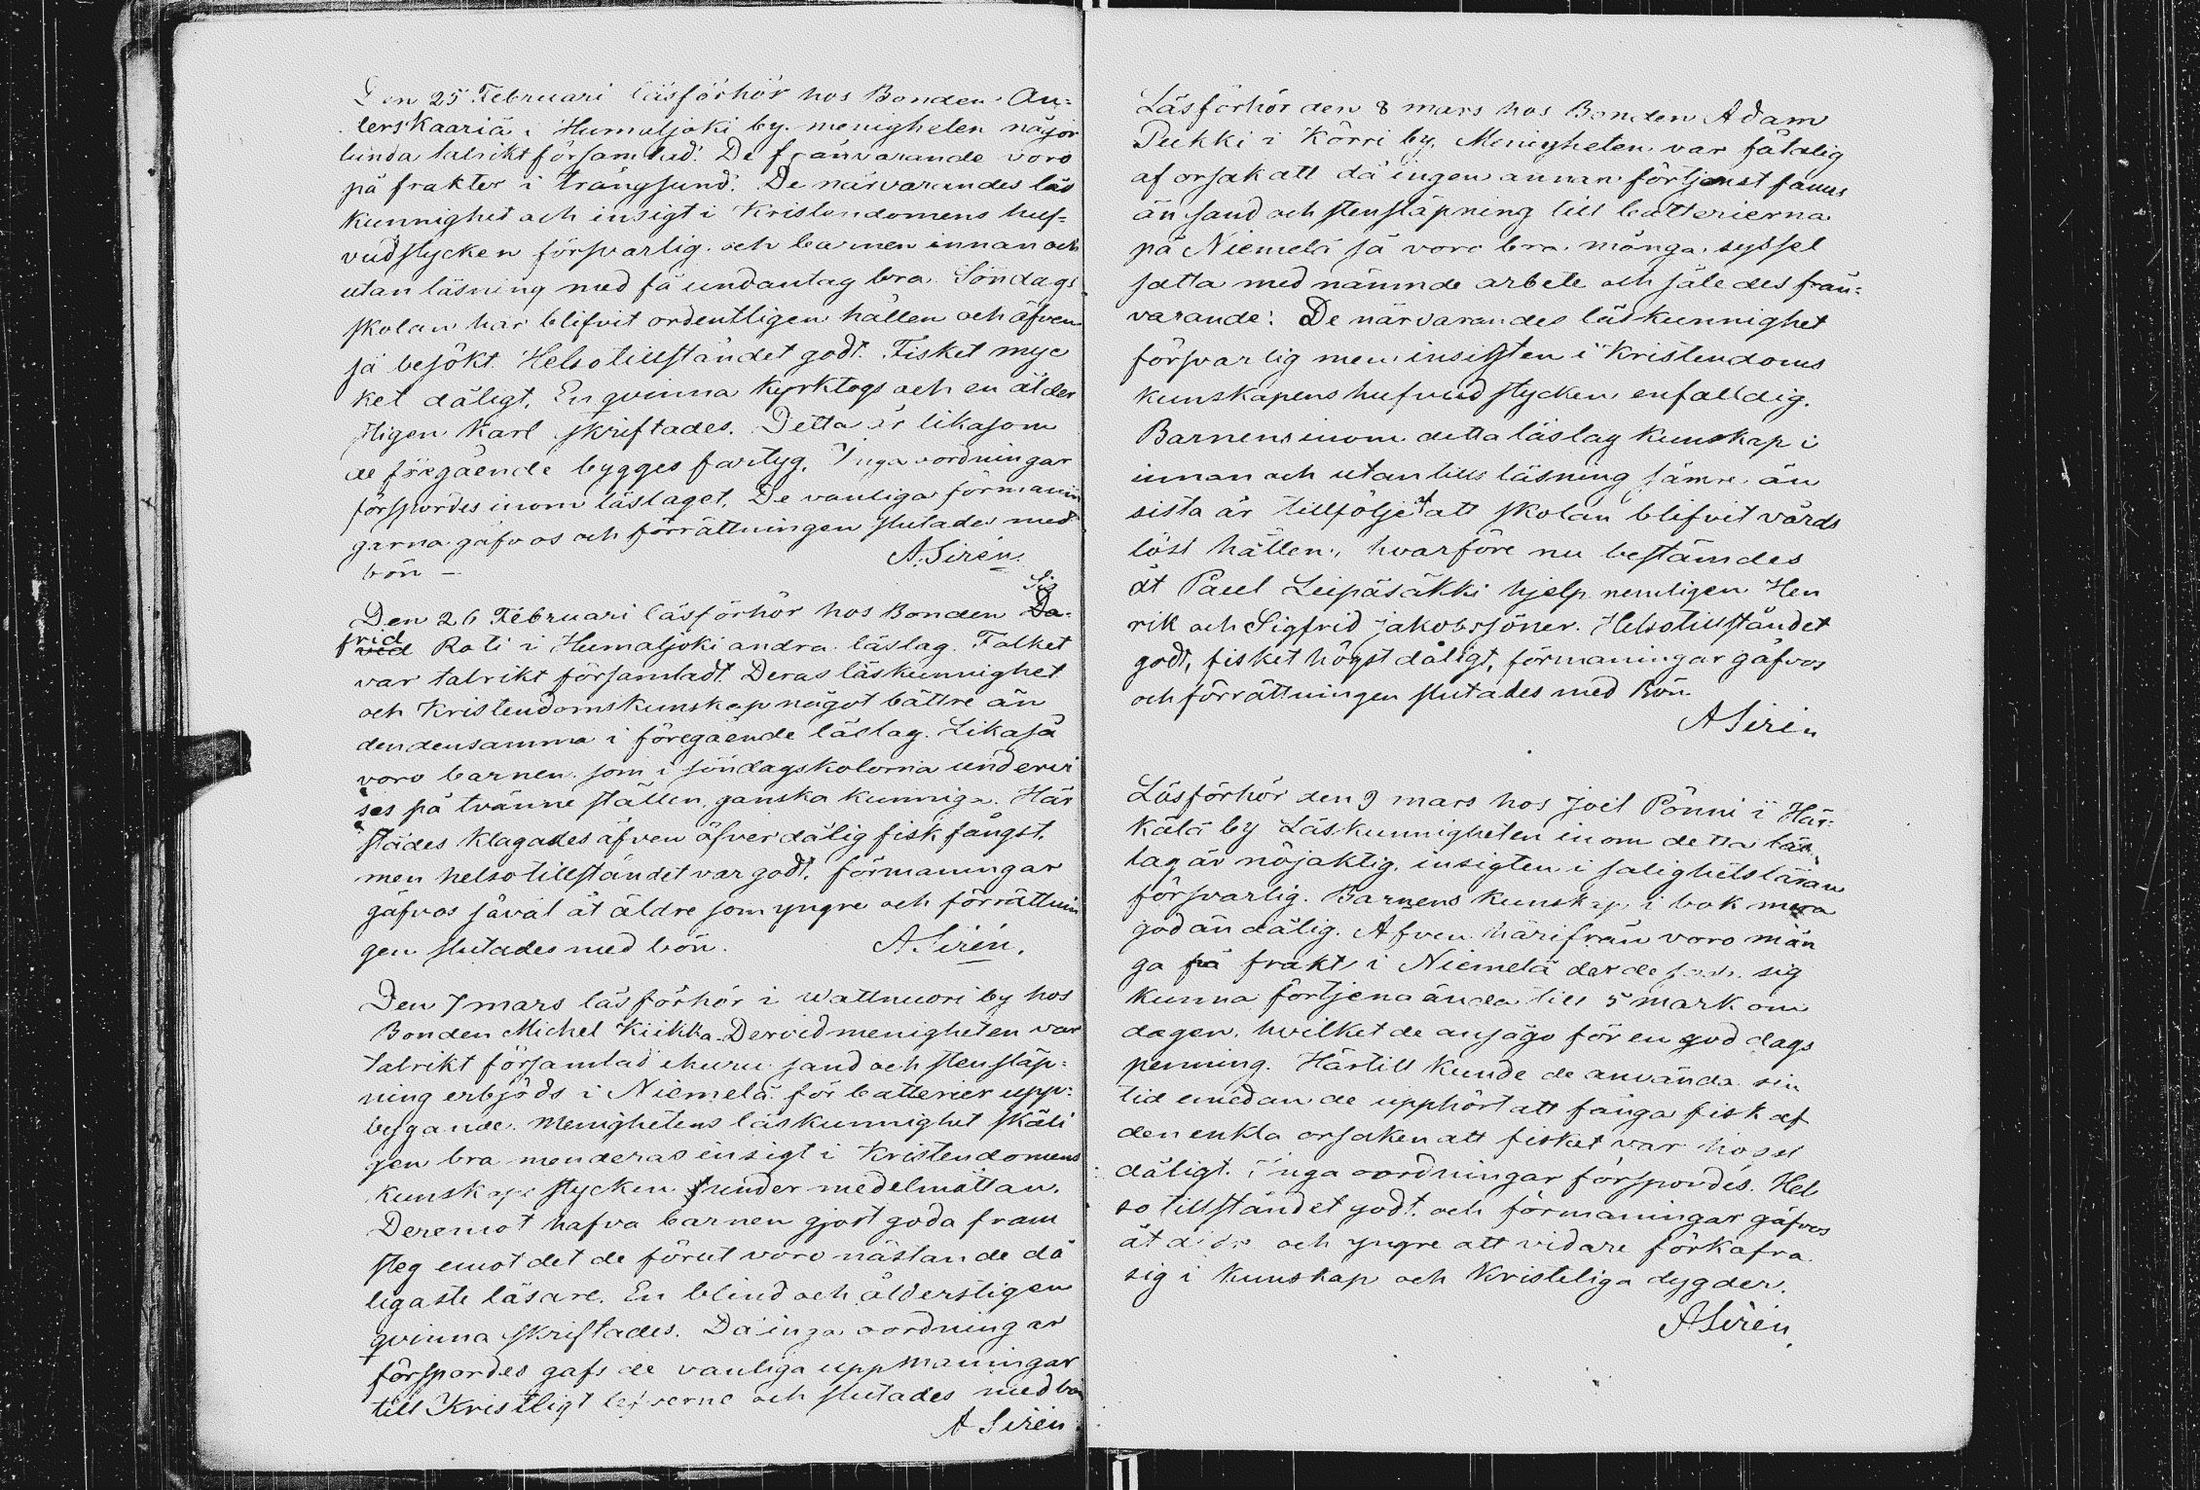 Den 25 Februari läsförhör hos Bonden An=
ders Kaariä i Humaljoki by. menigheten någor
lunda talrikt församlad. De frånvarande voro
på frakter i Trångsund. De närvarandes läs
kunnighet och insigt i Kristendomens huf=
vudstycken försvarlig och barnen innan och
utan läsning med få undantag bra. Söndags
skolan har blifvit ordentligen hållen och äfven
så besökt. Helsotillståndet godt. Fisket myc
ket dåligt. En qvinna kyrktogs och en ålder
stigen Karl skriftades. Detta år likasom
de föregående bygges fartyg. Inga oordningar
förspordes inom läslaget. De vanliga förmanin
garna gåfvos och förrättningen slutades med
bön – A. Sirén.
Den 26 Februari läsförhör hos Bonden Sig
frid Rati i Humaljoki andra läslag. Falket
var talrikt församladt. Deras läskunnighet
och Kristendomskunskap något bättre än
den densamma i föregående läslag. Likaså
voro barnen som i söndagskolorna undervi
ses på tvänne ställen, ganska kunniga. Här
städes klagades äfven öfver dålig fiskfångst,
men helsotillståndet var godt. förmaningar
gåfvos såväl åt äldre som yngre och förrättnin
gen slutades med bön. A Sirén.
Den 7 mars läsförhör i Wattnuori by hos
Bonden Michel Kiikka. Dervid menigheten var
talrikt församlad ehuru sand och stensläp=
ning erbjöds i Niemelä för batteriers upp=
byggande. Menighetens läskunnighet skäli
gen bra men deras insigt i Kristendomens
kunskaps stycken under medelmåttan.
Deremot hafva barnen gjort goda fram
steg emot det de förut voro nästan de då
ligaste läsare. En blind och ålderstigen
qvinna skriftades. Då inga oordningar
förspordes gafs de vanliga uppmaningar
till Kristligt lefverne och slutades med bön
A Sirén
Läsförhör den 8 mars hos Bonden Adam
Pukki i Körri by. Menigheten var fåtalig
af orsak att då ingen annan förtjenst fanns
än sand och stensläpning till batterierna
på Niemelä så voro bra många syssel
satta med nämnde arbete och således från=
varande. De närvarandes läskunnighet
försvarlig men insigten i Kristendoms
kunskapens hufvudstycken enfalldig.
Barnens inom detta läslag kunskap i
innan och utantill läsning sämre än
sista år tillfölje af att skolan blifvit vårds
löst hållen, hvarföre nu bestämdes
åt Paul Leipäsäkki hjelp nemligen Hen
rik och Sigfrid Jakobssöner. Helsotillståndet
godt, fisket högst dåligt, förmaningar gåfvos
och förrättningen slutades med Bön.
A Sirén
Läsförhör den 9 mars hos Joel Pönni i Här=
kälä by Läskunnigheten inom detta läs
lag är nöjaktig, insigten i salighetsläran
försvarlig. Barnens kunskap i bok mera
god än dålig. Äfven härifrån voro mån
ga på frakt i Niemelä der de sig
kunna förtjena ända till 5 mark om
dagen, hvilket de ansågo för en god dags
penning. Härtill kunde de använda sin
tid emedan de upphört att fånga fisk af
den enkla orsaken att fisket var högst
dåligt. Inga oordningar förspordes. Hel
sotillståndet godt och förmaningar gåfvos
åt äldre och yngre att vidare förkofra
sig i kunskap och Kristeliga dygder.
A Sirén